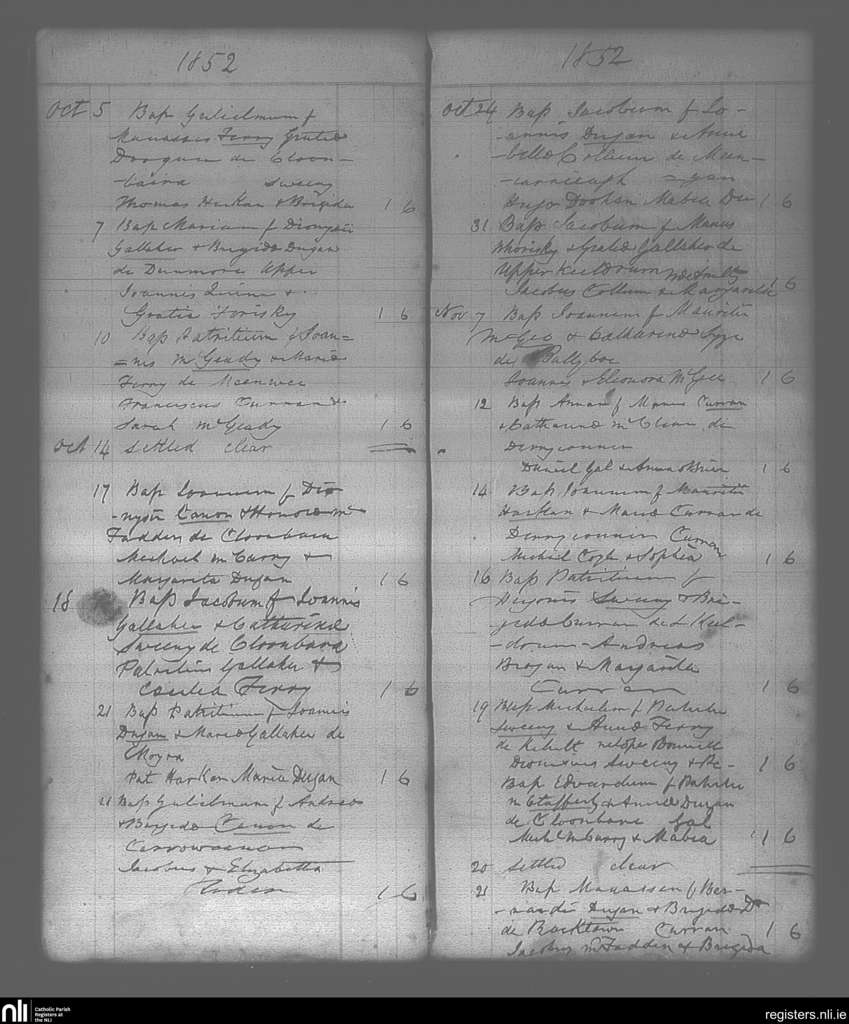 1852
Oct 5 Bap Gulielmum f
Manassis Ferry Gratia
Doogan de Cloon-
-baira Sweeny
Thomas Harkan & Brigida 1 6
7 Bap Mariam f Dionysii
Gallaher & Brigida Dugan
de Dunmore Upper
Joannis Quinn &
Gratia Forisky 1 6
10 Bap Patritium f Joan=
=nis McGeady & Maria
Ferry de Meenwee
Franciscus Curran &
Sarah McGeady 1 6
Oct 14 settled clear
17 Bap Joannem f Dio
-nysii Canon & Honora Mc
Fadden de Cloonbara
Michael McCarry &
Margarita Dugan 1 6
18 Bap Jacobum f Joannis
Gallaher & Catharina
Sweeny de Cloonbara
Patritius Gallaher &
Cecilia Ferry 1 6
21 Bap Patritium f Joannis
Dugan & Maria Gallaher de
Moyra
Pat Harkan Maria Dugan 1 6
21 Bap Gulielmum f Andreas
& Brigida Canon de
Carrowcanon
Jacobus & Elizabetha
1 6
1852
Oct 24 Bap Jacobum f Jo-
-annis Dugan & Anna
-bella Collum de Meen-
Hugo Doohan Mabla Du 1 6
31 Bap Jacobum f Manus
Whorisky & Gratia Gallaher de
Upper Keeldrum
Jacobus Collum & Margarita 1 6
Nov 7 Bap Joannem f Mauritii
McGee & Catharina
de Ballyboe
Joannis & Eleonora McGee 1 6
12 Bap Annam f Manus Curran
& Catharina McClean de
Derryconner
Daniel Gal & Anna O'Brien 1 6
14 Bap Joannem f Mauritii
Harkan & Maria Curran de
Derryconner Curran
Michael Coyle & Sophia 1 6
16 Bap Patritium f
Hugonis Sweeny & Bri-
-gida Curran de L Keel-
-drum - Andreas
Brogan & Margarita
Curran 1 6
19 Bap Michaelem f Patritii
Sweeny & Anna Ferry
de Kilult
Dionisius Sweeny & 1 6
Bap Edvardum f Patritii
McClafferty & Anna Dugan
de Cloonbara Gal
Michl McCarry & Mabla 1 6
20 Settled clear
21 Bap Manassem f Ber-
-nardi Dugan & Brigida D
de Racktown Curran 1 6
Jacobus McFadden & Brigida
nli
Catholic Parish
Registers at
the NLI
registers.nli.ie